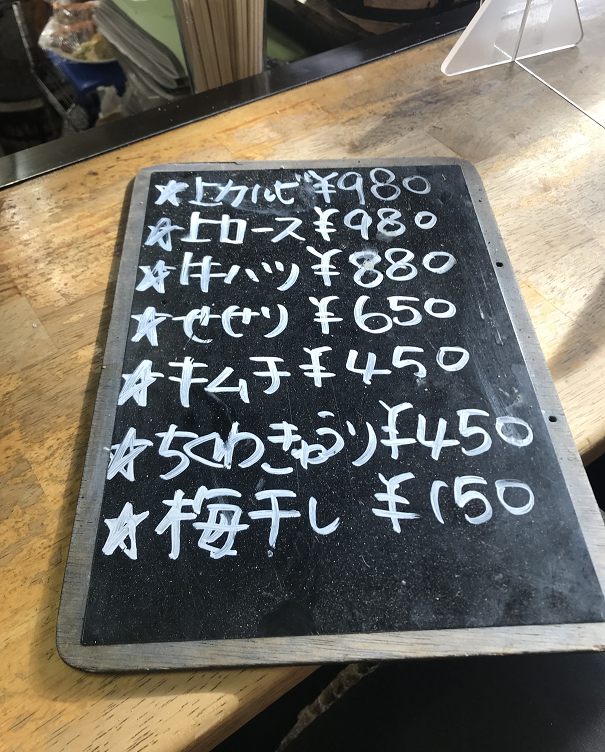 ☆上カルビ ¥980
☆上ロース ¥980
☆牛ハツ ¥880
☆せせり ¥650
☆キムチ ¥450
☆ちくわきゅうり ¥450
☆梅干し ¥150